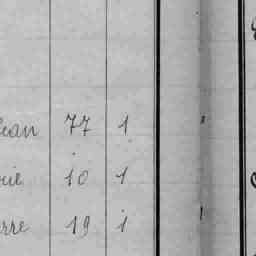 ean 77 1
rie 10 1
erre 19 1